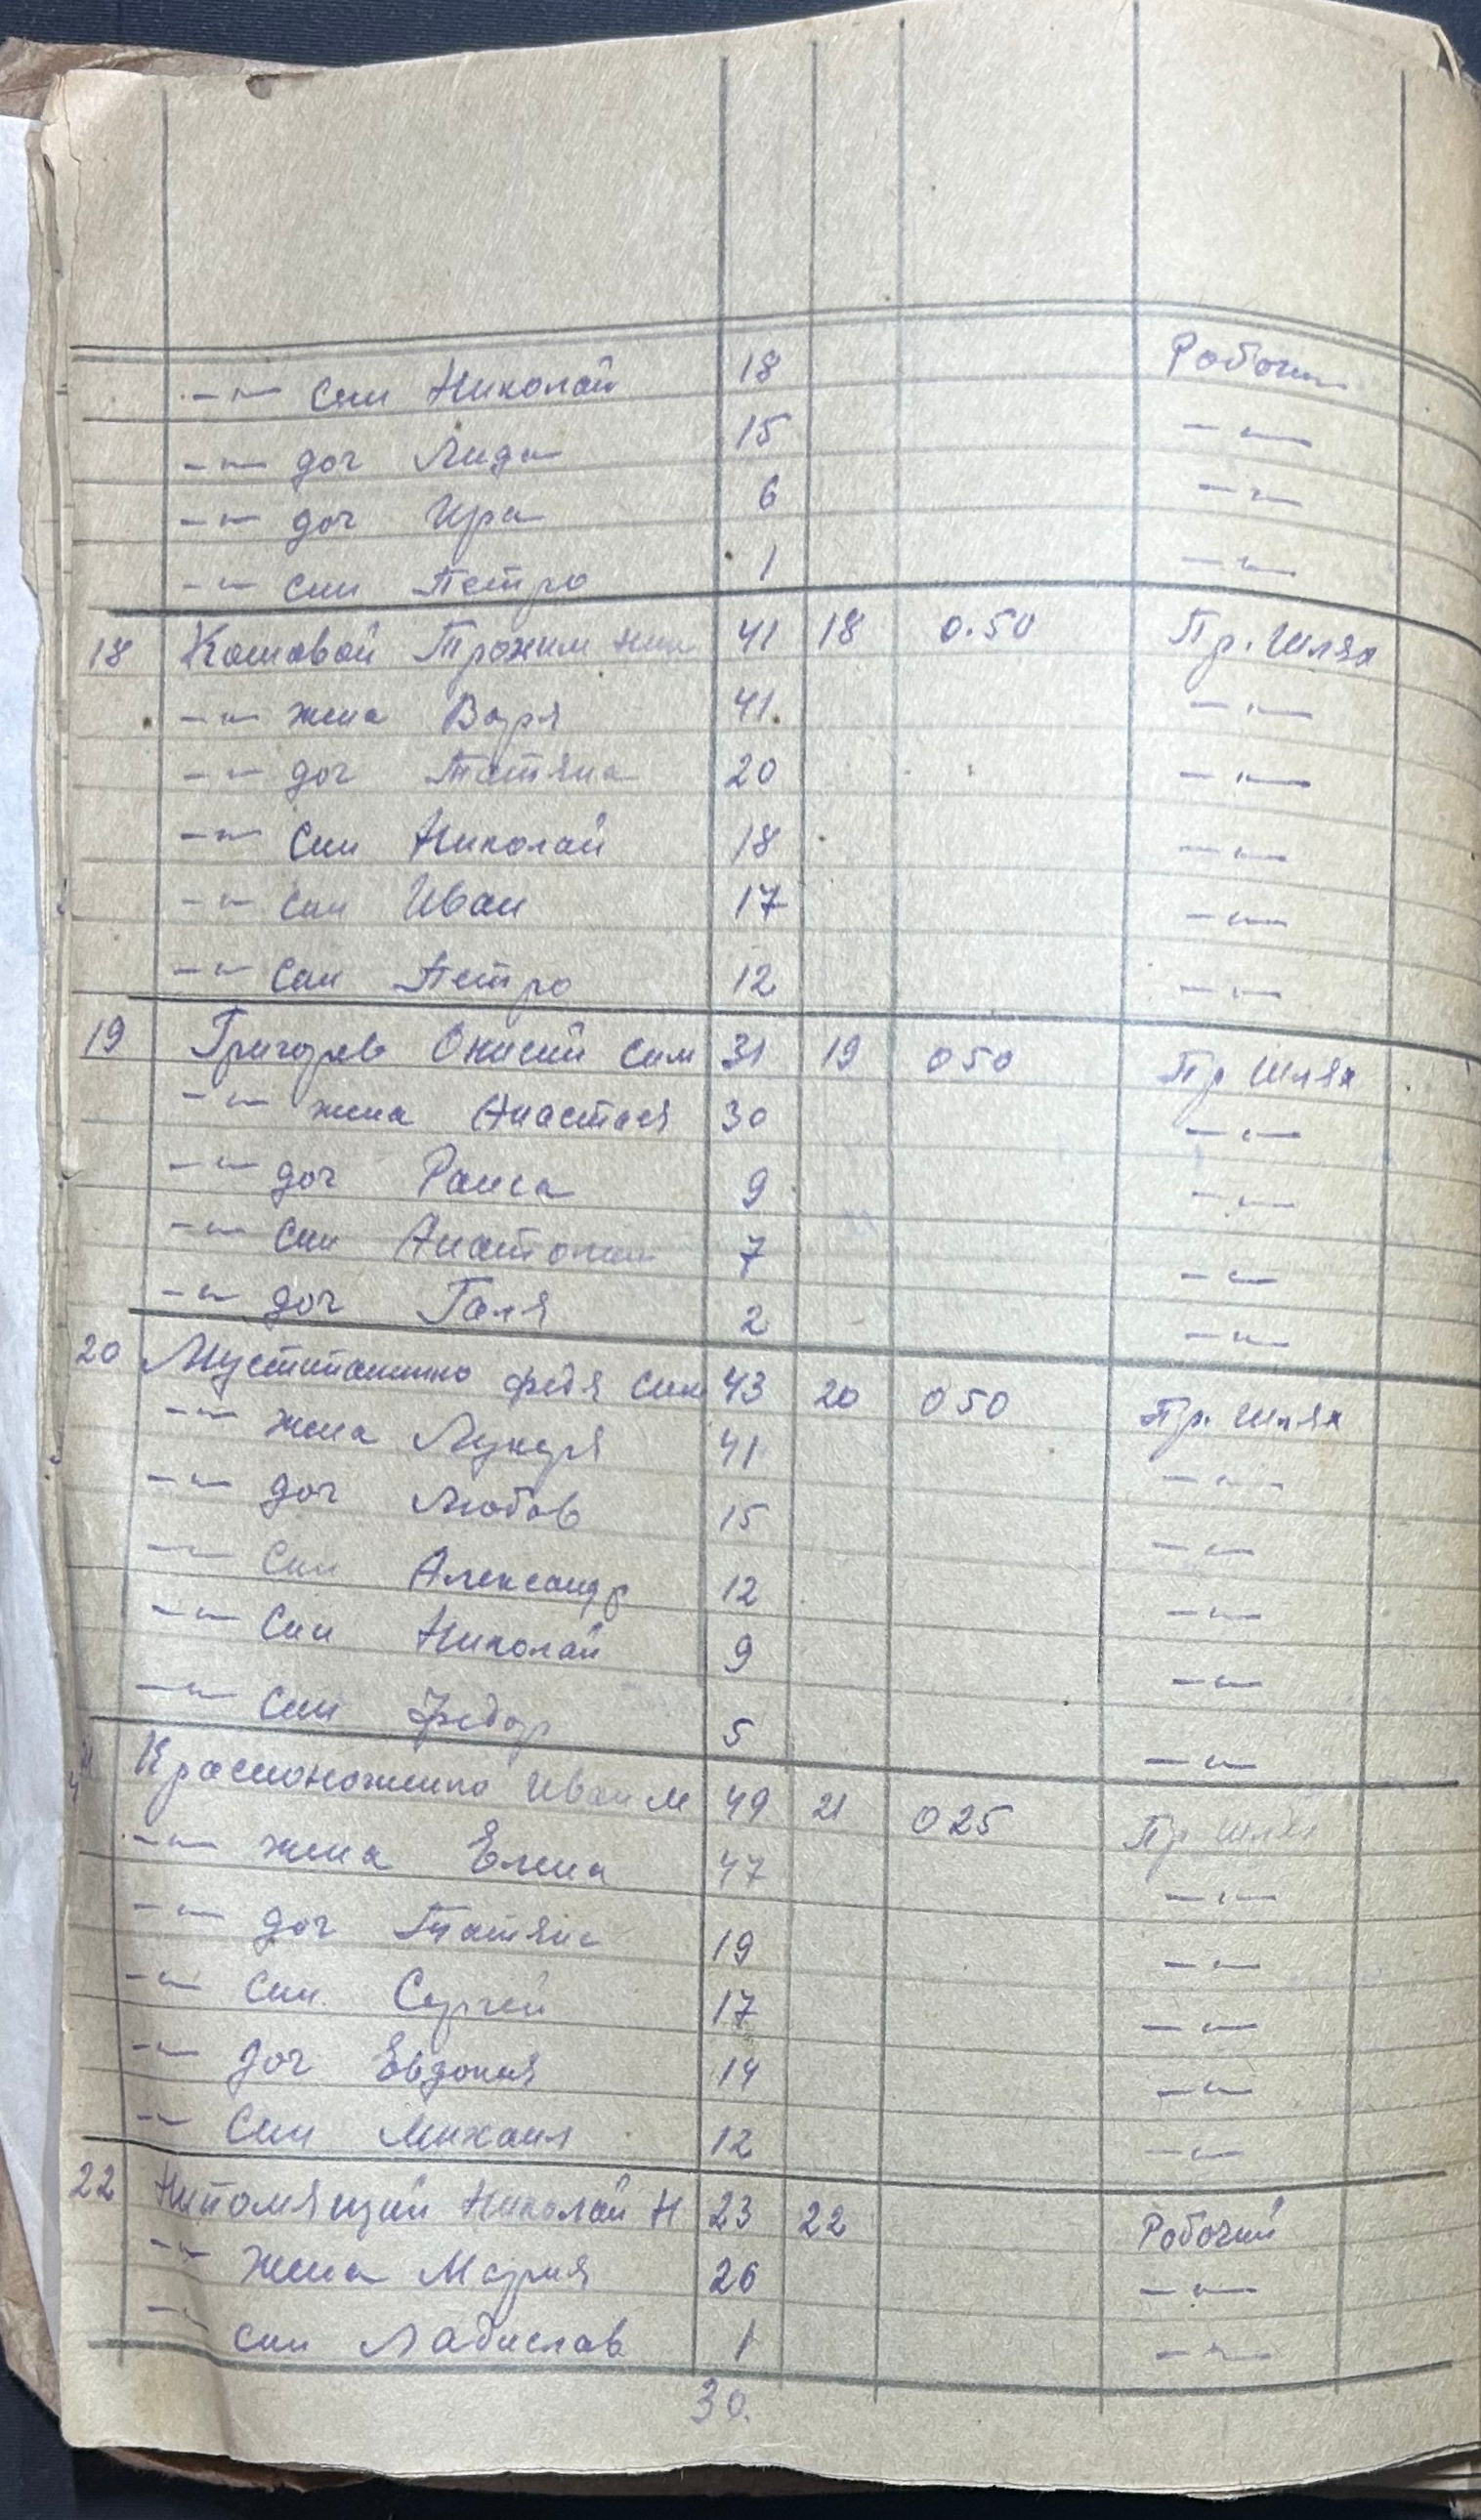 -"- син Николай 18 Робочи
-"- доч Лида 15 -"-
-"- доч Ира 6 -"-
-"- син Петро 1 -"-
18 Кошовой Трохим Ник 41 18 0.50 Пр. Шлях
-"- жена Варя 41 -"-
-"- доч Татяна 20 -"-
-"- син Николай 18 -"-
-"- син Иван 17 -"-
-"- син Петро 12 -"-
19 Григорев Онисий Сим 31 19 0 50 Пр Шлях
-"- жена Анастася 30 -"-
-"- доч Раиса 9 -"-
-"- син Анатолий 7 -"-
-"- доч Галя 2 -"-
20 федя Сим 43 20 0 50 Пр. Шлях
-"- жена Лукеря 41 -"-
-"- доч Любов 15 -"-
-"- син Александр 12 -"-
-"- син Николай 9 -"-
-"- син федор 5 -"-
21 Красноноженко Иван М 49 21 0 25 Пр Шлях
-"- жена Елена 47 -"-
-"- доч Татяна 19 -"-
-"- син Сергей 17 -"-
-"- доч Евдокия 14 -"-
-"- син Михаил 12 -"-
22 Нипомящий Николай Н 23 22 Робочий
-"- жена Мария 26 -"-
-"- син Ладислав 1 -"-
30.